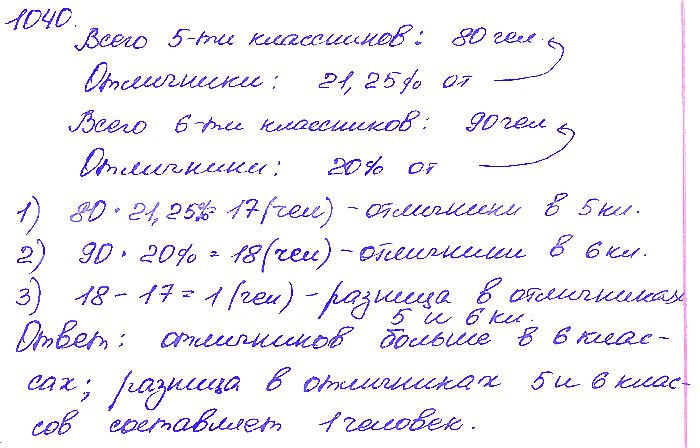 1040.
Всего 5-ти классников: 80 чел.
Отличники: 21,25% от
Всего 6-ти классников: 90 чел
Отличники: 20% от
1) 80 · 21,25% = 17 (чел) - отличники в 5 кл.
2) 90 · 20% = 18 (чел) - отличники в 6 кл.
3) 18 - 17 = 1 (чел) - разница в отличниках
5 и 6 кл.
Ответ: отличников больше в 6 клас-
сах; разница в отличниках 5 и 6 клас-
сов составляет 1 человек.